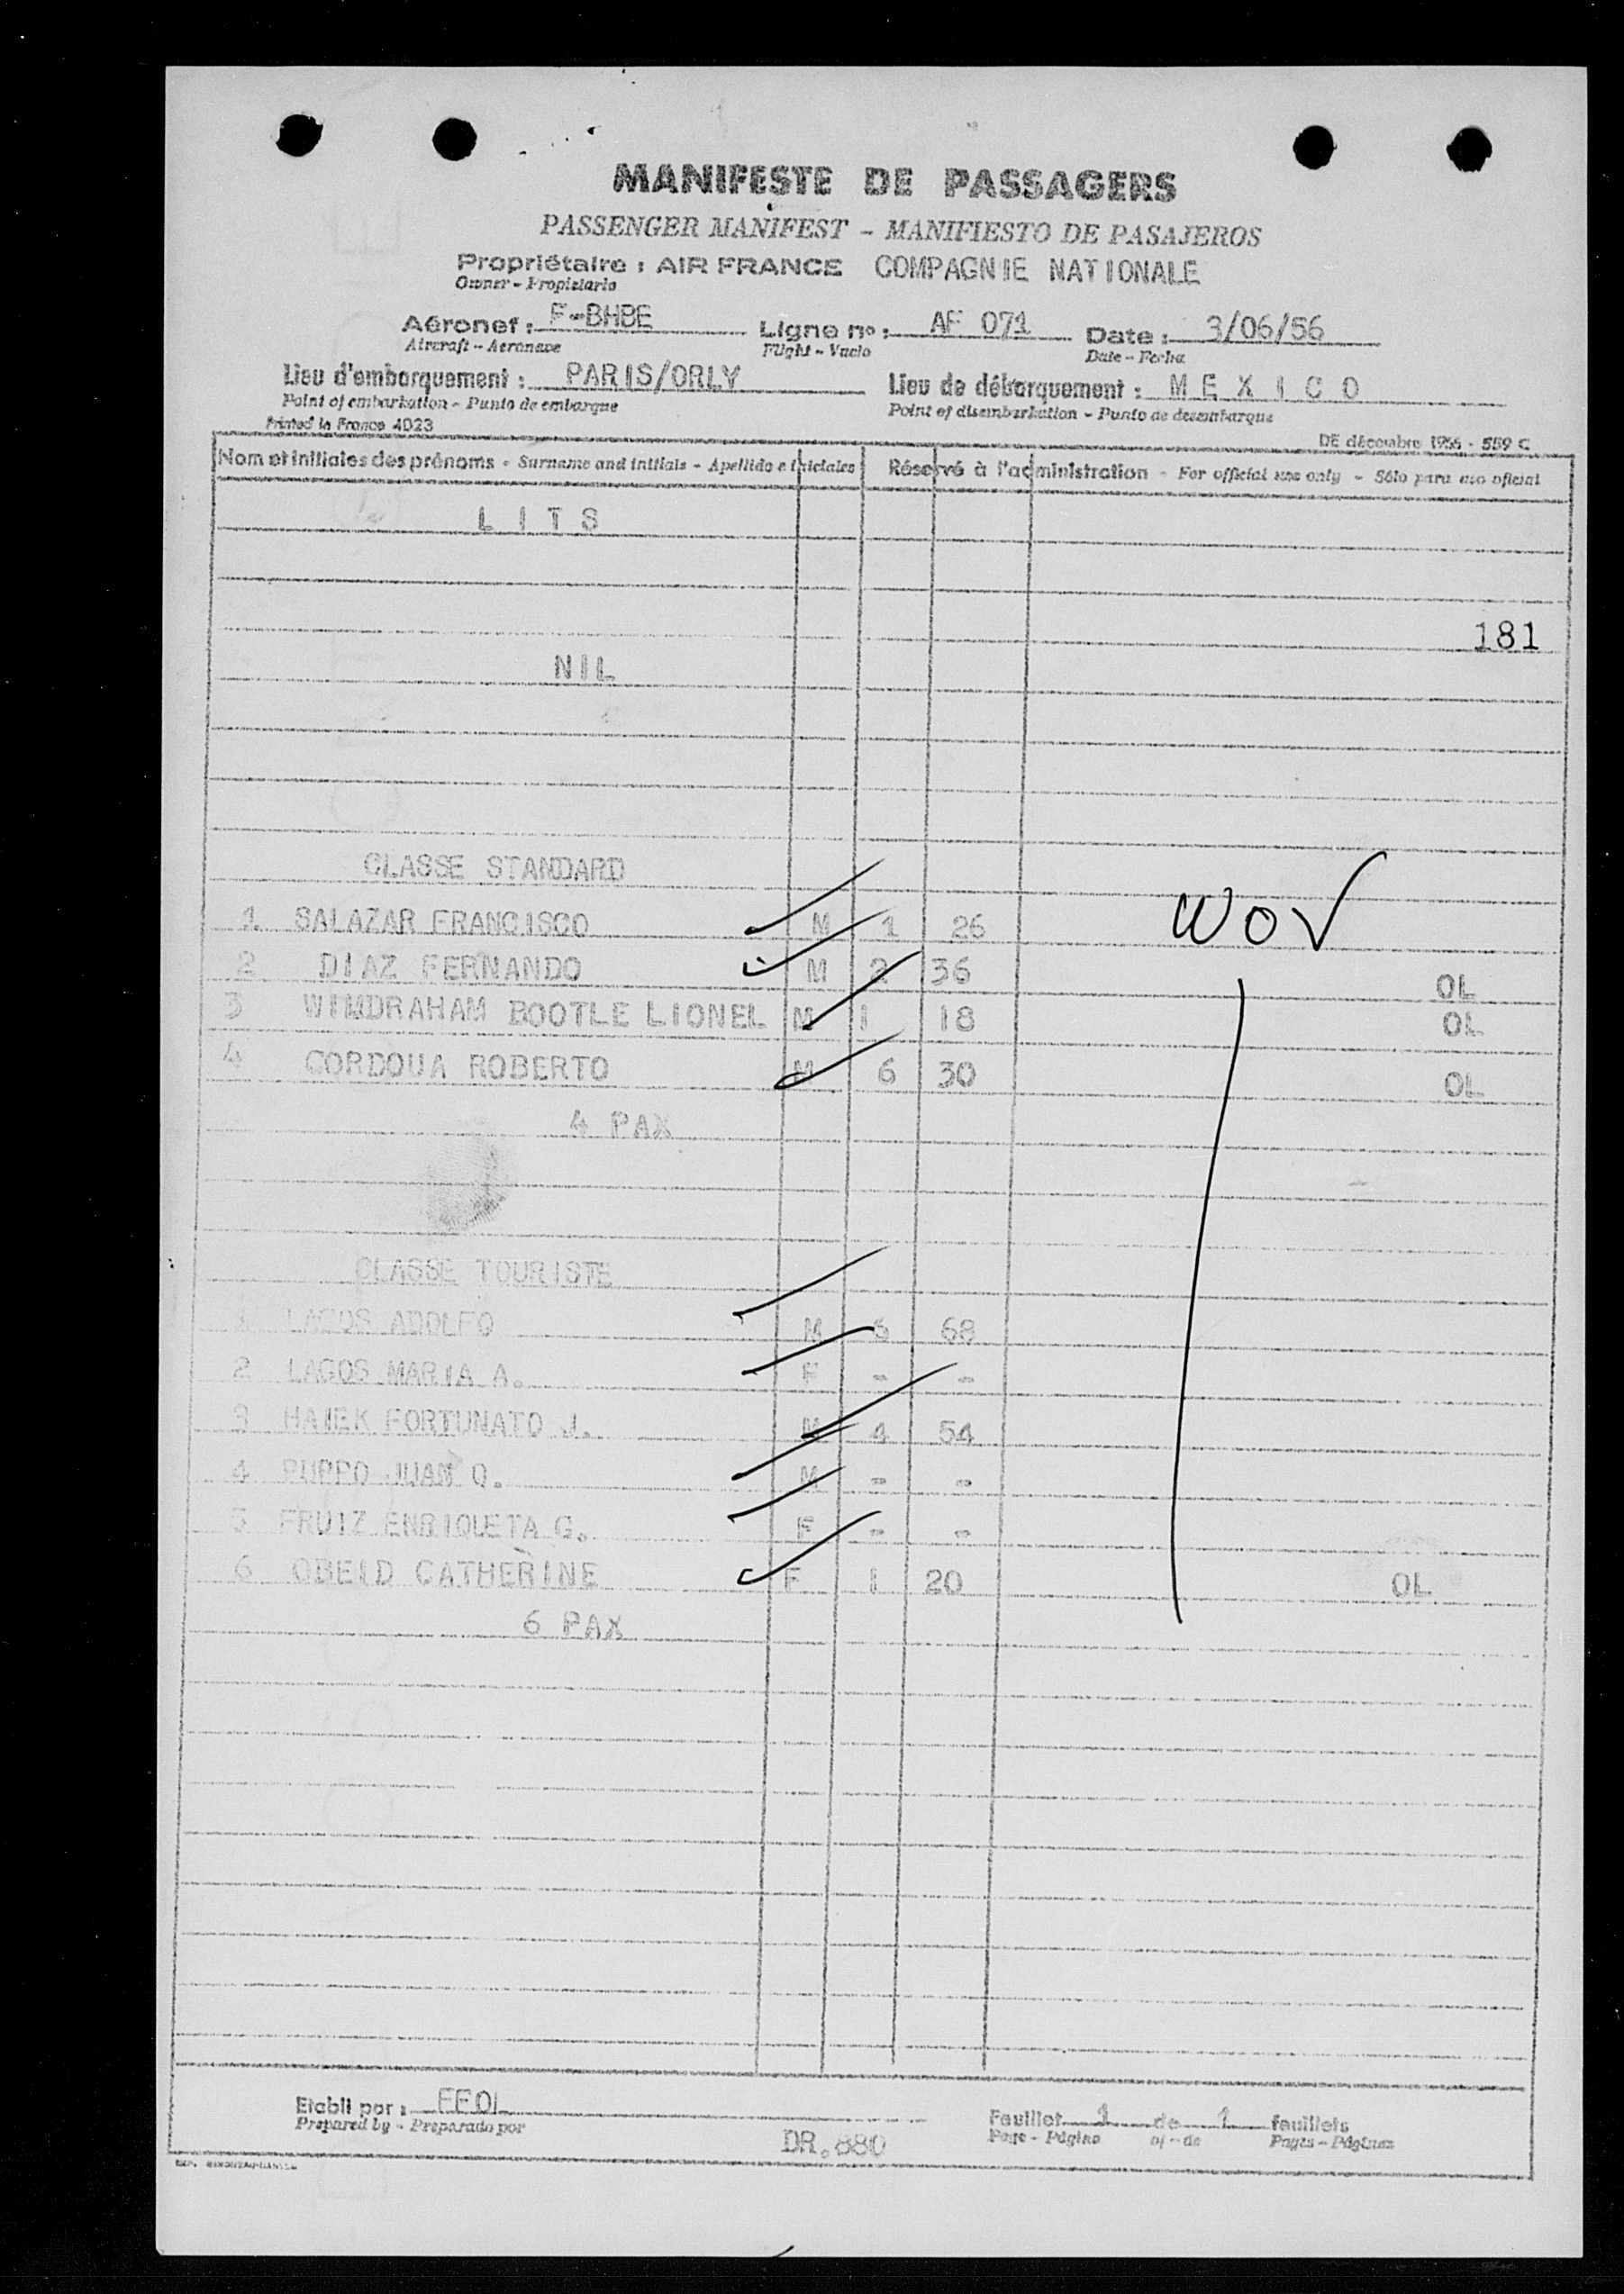 MANIFESTE DE PASSAGERS
PASSENGER MANIFEST - MANIFIESTO DE PASAJEROS
Propriétaire : AIR FRANCE COMPAGNIE NATIONALE
Owner - Propietario
Aéronef : F-BHBE Ligne no : AF 071 Date : 3/06/56
Aircraft - Aeronave Flight - Vuelo Date - Fecha
Lieu d'embarquement : PARIS/ORLY Lieu de débarquement : M E X I C O
Point of embarkation - Punto de embarque Point of disembarkation - Punto de desembarque
Printed in France 4023 DE décembre 1955 - 559 C
Nom et initiales des prénoms - Surname and initials - Apellido e iniciales Réservé à l'administration - For official use only - Sólo para uso oficial
L I T S
181
NIL
CLASSE STANDARD
1 SALAZAR FRANCISCO M 1 26 WOV
2 DIAZ FERNANDO M 2 36 OL
3 WIMDRAHAM BOOTLE LIONEL M 1 18 OL
4 CORDOUA ROBERTO M 6 30 OL
4 PAX
CLASSE TOURISTE
1 LAGOS ADOLFO M 5 68
2 LAGOS MARIA A. F - -
3 HAIEK FORTUNATO J. M 4 54
4 PUPPO JUAN O. M - -
5 FRUIZ ENRIQUETA G. F - -
6 OBEID CATHERINE F 1 20 OL
6 PAX
Etabli par : FFOL Feuillet 1 de 1 feuillets
Prepared by - Preparado por Page - Página of - de Pages - Páginas
DR.880